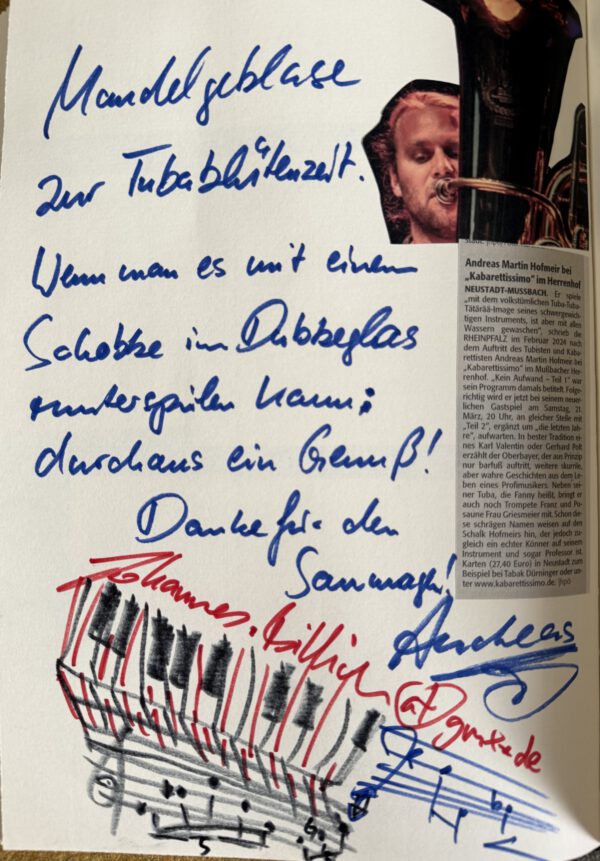 Mandelgeblase
zur Tubablütenzeit.
Wenn man es mit einem
Schobbe im Dubbeglas
runterspülen kann:
durchaus ein Genuß!
Danke für den
Saumagen!
Andreas
Johannes.Billich@gmx.de
5
Andreas Martin Hofmeir bei
„Kabarettissimo“ im Herrenhof
NEUSTADT-MUSSBACH. Er spiele
„mit dem volkstümlichen Tuba-Tuba-
Tätärää-Image seines schwergewich-
tigen Instruments, ist aber mit allen
Wassern gewaschen“, schrieb die
RHEINPFALZ im Februar 2024 nach
dem Auftritt des Tubisten und Kaba-
rettisten Andreas Martin Hofmeir bei
„Kabarettissimo“ im Mußbacher Her-
renhof. „Kein Aufwand – Teil 1“ war
sein Programm damals betitelt. Folge-
richtig wird er jetzt bei seinem neuer-
lichen Gastspiel am Samstag, 21.
März, 20 Uhr, an gleicher Stelle mit
„Teil 2“, ergänzt um „die letzten Jah-
re“, aufwarten. In bester Tradition ei-
nes Karl Valentin oder Gerhard Polt
erzählt der Oberbayer, der aus Prinzip
nur barfuß auftritt, weitere skurrile,
aber wahre Geschichten aus dem Le-
ben eines Profimusikers. Neben sei-
ner Tuba, die Fanny heißt, bringt er
auch noch Trompete Franz und Po-
saune Frau Griesmeier mit. Schon die-
se schrägen Namen weisen auf den
Schalk Hofmeirs hin, der jedoch zu-
gleich ein echter Könner auf seinem
Instrument und sogar Professor ist.
Karten (27,40 Euro) in Neustadt zum
Beispiel bei Tabak Dürninger oder un-
ter www.kabarettissimo.de. |hpö